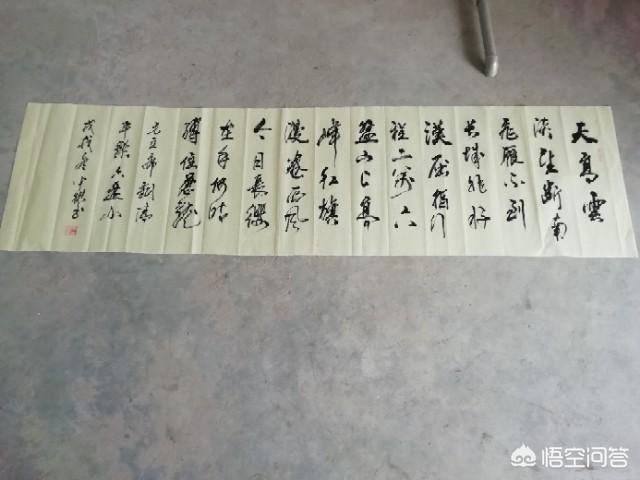 天高雲
淡望断南
飛雁不到
长城非好
漢屈指行
程二万六
盘山上高
峰红旗
漫卷西风
今日長缨
在手何时
缚住苍龍
毛主席词清
平乐六盘山
戊戌 书
悟空问答